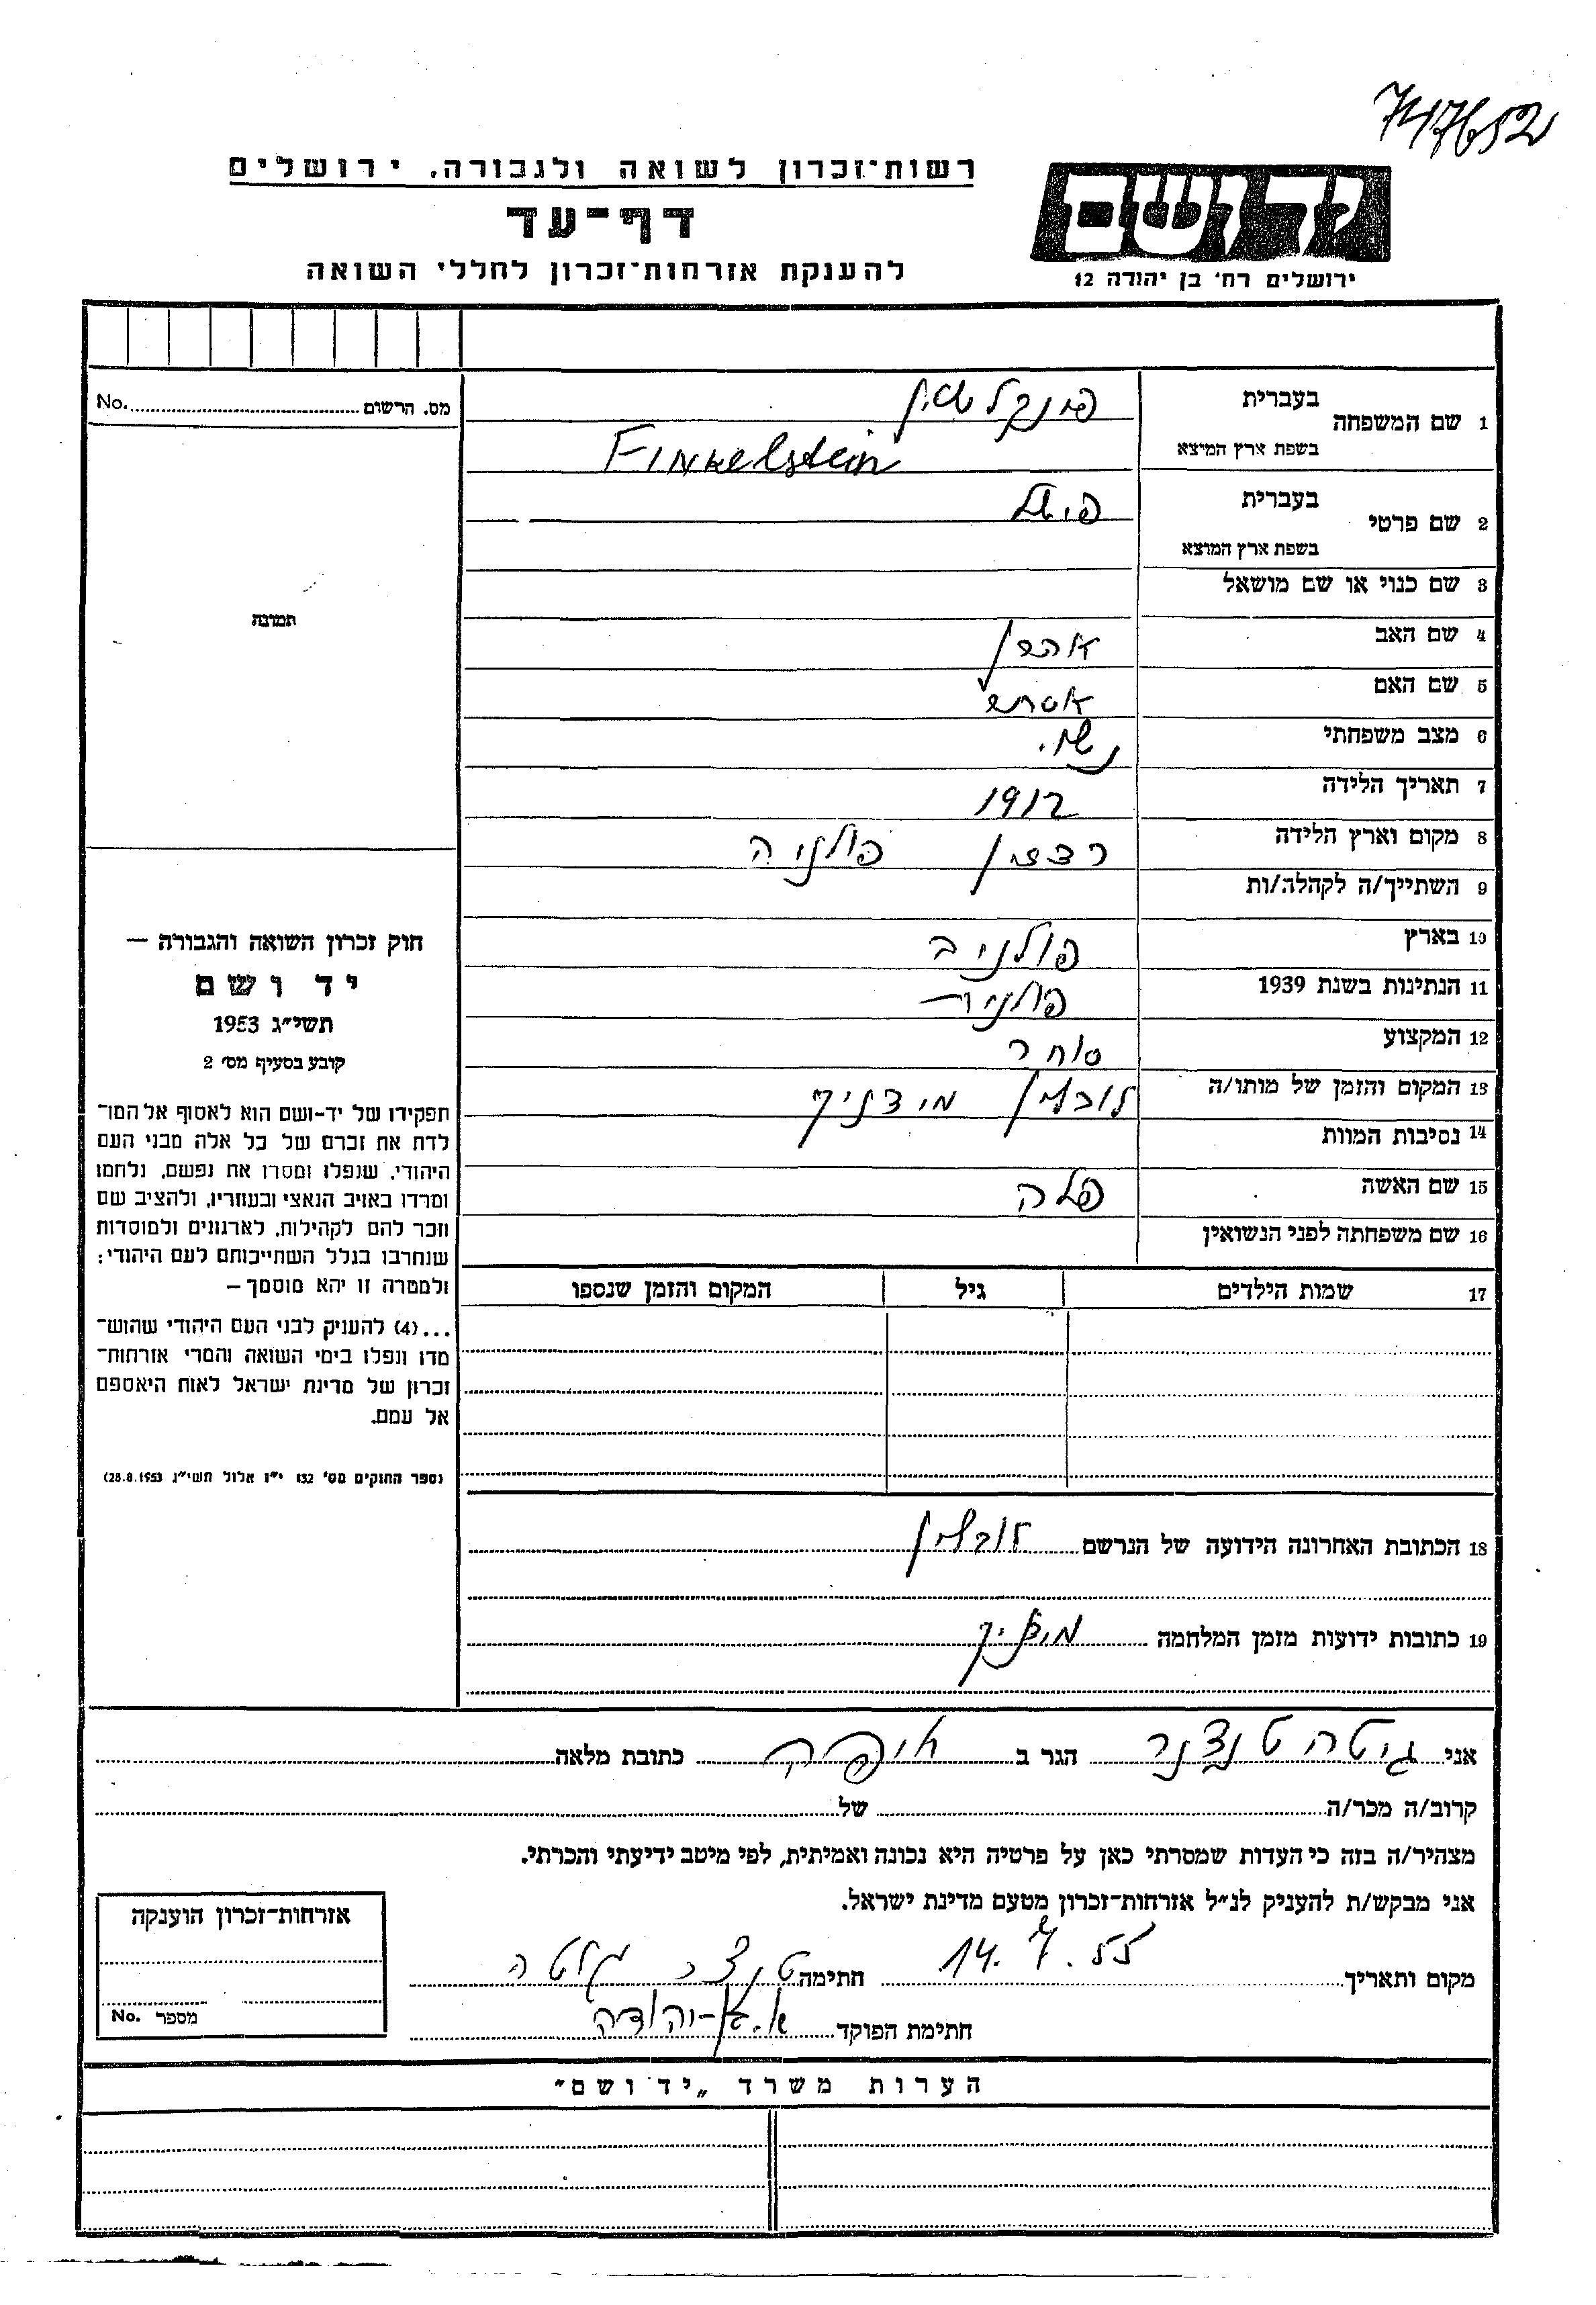 747652
רשות־זכרון לשואה ולגבורה. ירושלים
דף־עד
להענקת אזרחות־זכרון לחללי השואה
ידושם
ירושלים רח׳ בן יהודה 12
מס. הרשום No.
1 שם המשפחה בעברית פינקלשטיין
בשפת ארץ המיצא Finkelstein
2 שם פרטי בעברית פישל
בשפת ארץ המוצא
3 שם כנוי או שם מושאל
תמונה
4 שם האב אהרן
5 שם האם אסתר
6 מצב משפחתי נשוי
7 תאריך הלידה 1912
8 מקום וארץ הלידה רדצין פולניה
9 השתייך/ה לקהלה/ות
10 בארץ פולניה
11 הנתינות בשנת 1939 פולנית
12 המקצוע סוחר
13 המקום והזמן של מותו/ה לובלין מידניק
14 נסיבות המוות
15 שם האשה פלה
16 שם משפחתה לפני הנשואין
17 שמות הילדים גיל המקום והזמן שנספו
חוק זכרון השואה והגבורה —
יד ושם
תשי״ג 1953
קובע בסעיף מס׳ 2
תפקידו של יד-ושם הוא לאסוף אל המו־
לדת את זכרם של כל אלה מבני העם
היהודי, שנפלו ומסרו את נפשם, נלחמו
ומרדו באויב הנאצי ובעוזריו, ולהציב שם
וזכר להם לקהילות, לארגונים ולמוסדות
שנחרבו בגלל השתייכותם לעם היהודי:
ולמטרה זו יהא מוסמך —
...(4) להעניק לבני העם היהודי שהוש־
מדו ונפלו בימי השואה והמרי אזרחות־
זכרון של מדינת ישראל לאות היאספם
אל עמם.
(ספר החוקים מס׳ 132 י״ז אלול תשי״ג 28.8.1953)
18 הכתובת האחרונה הידועה של הנרשם לובלין
19 כתובות ידועות מזמן המלחמה מידניק
אני גיטה טנצנר הגר ב חיפה כתובת מלאה
קרוב/ה מכר/ה של
מצהיר/ה בזה כי העדות שמסרתי כאן על פרטיה היא נכונה ואמיתית, לפי מיטב ידיעתי והכרתי.
אני מבקש/ת להעניק לנ״ל אזרחות־זכרון מטעם מדינת ישראל.
מקום ותאריך 14. 7. 55 חתימה
חתימת הפוקד א. בן-יהודה
אזרחות־זכרון הוענקה
מספר No.
הערות משרד „יד ושם״